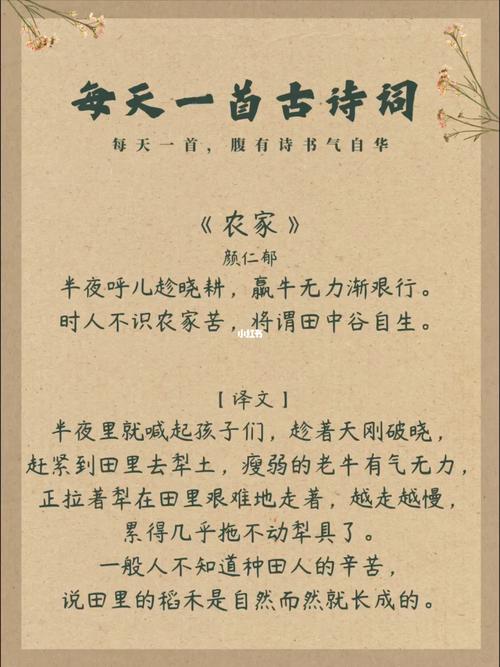 每天一首古诗词
每天一首，腹有诗书气自华
《农家》
颜仁郁
半夜呼儿趁晓耕，赢牛无力渐艰行。
时人不识农家苦，将谓田中谷自生。
小红书
【译文】
半夜里就喊起孩子们，趁著天刚破晓，
赶紧到田里去犁土，瘦弱的老牛有气无力，
正拉著犁在田里艰难地走著，越走越慢，
累得几乎拖不动犁具了。
一般人不知道种田人的辛苦，
说田里的稻禾是自然而然就长成的。